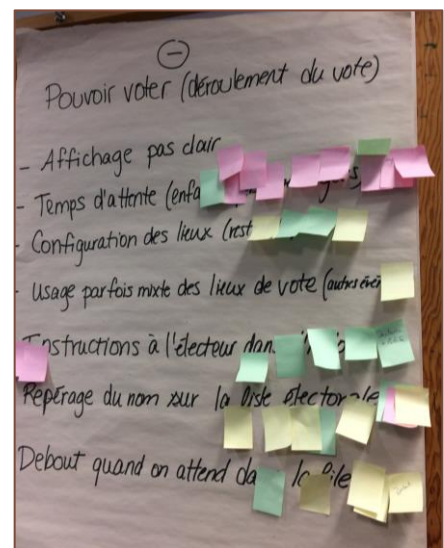 −
Pouvoir voter (déroulement du vote)
- Affichage pas clair
- Temps d'attente (enfa
- Configuration des lieux (rest
- Usage parfois mixte des lieux de vote (autres évén
Instructions à l'électeur dans
Repérage du nom sur la liste électorale
Debout quand on attend dans la file